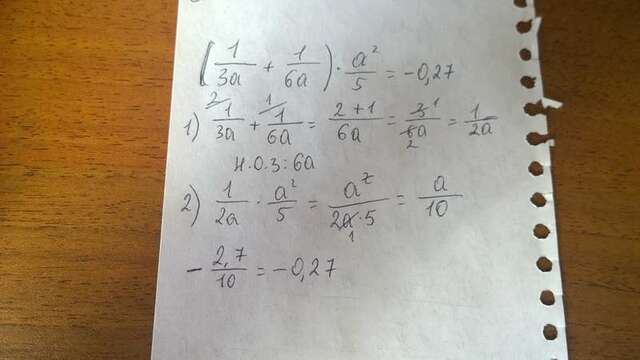 (1/3a + 1/6a) · a²/5 = -0,27
1) ²⁄ 1/3a + ¹⁄ 1/6a = 2+1/6a = 3¹/6₂a = 1/2a
Н.О.З: 6a
2) 1/2a · a²/5 = a²/2a₁·5 = a/10
- 2,7/10 = -0,27